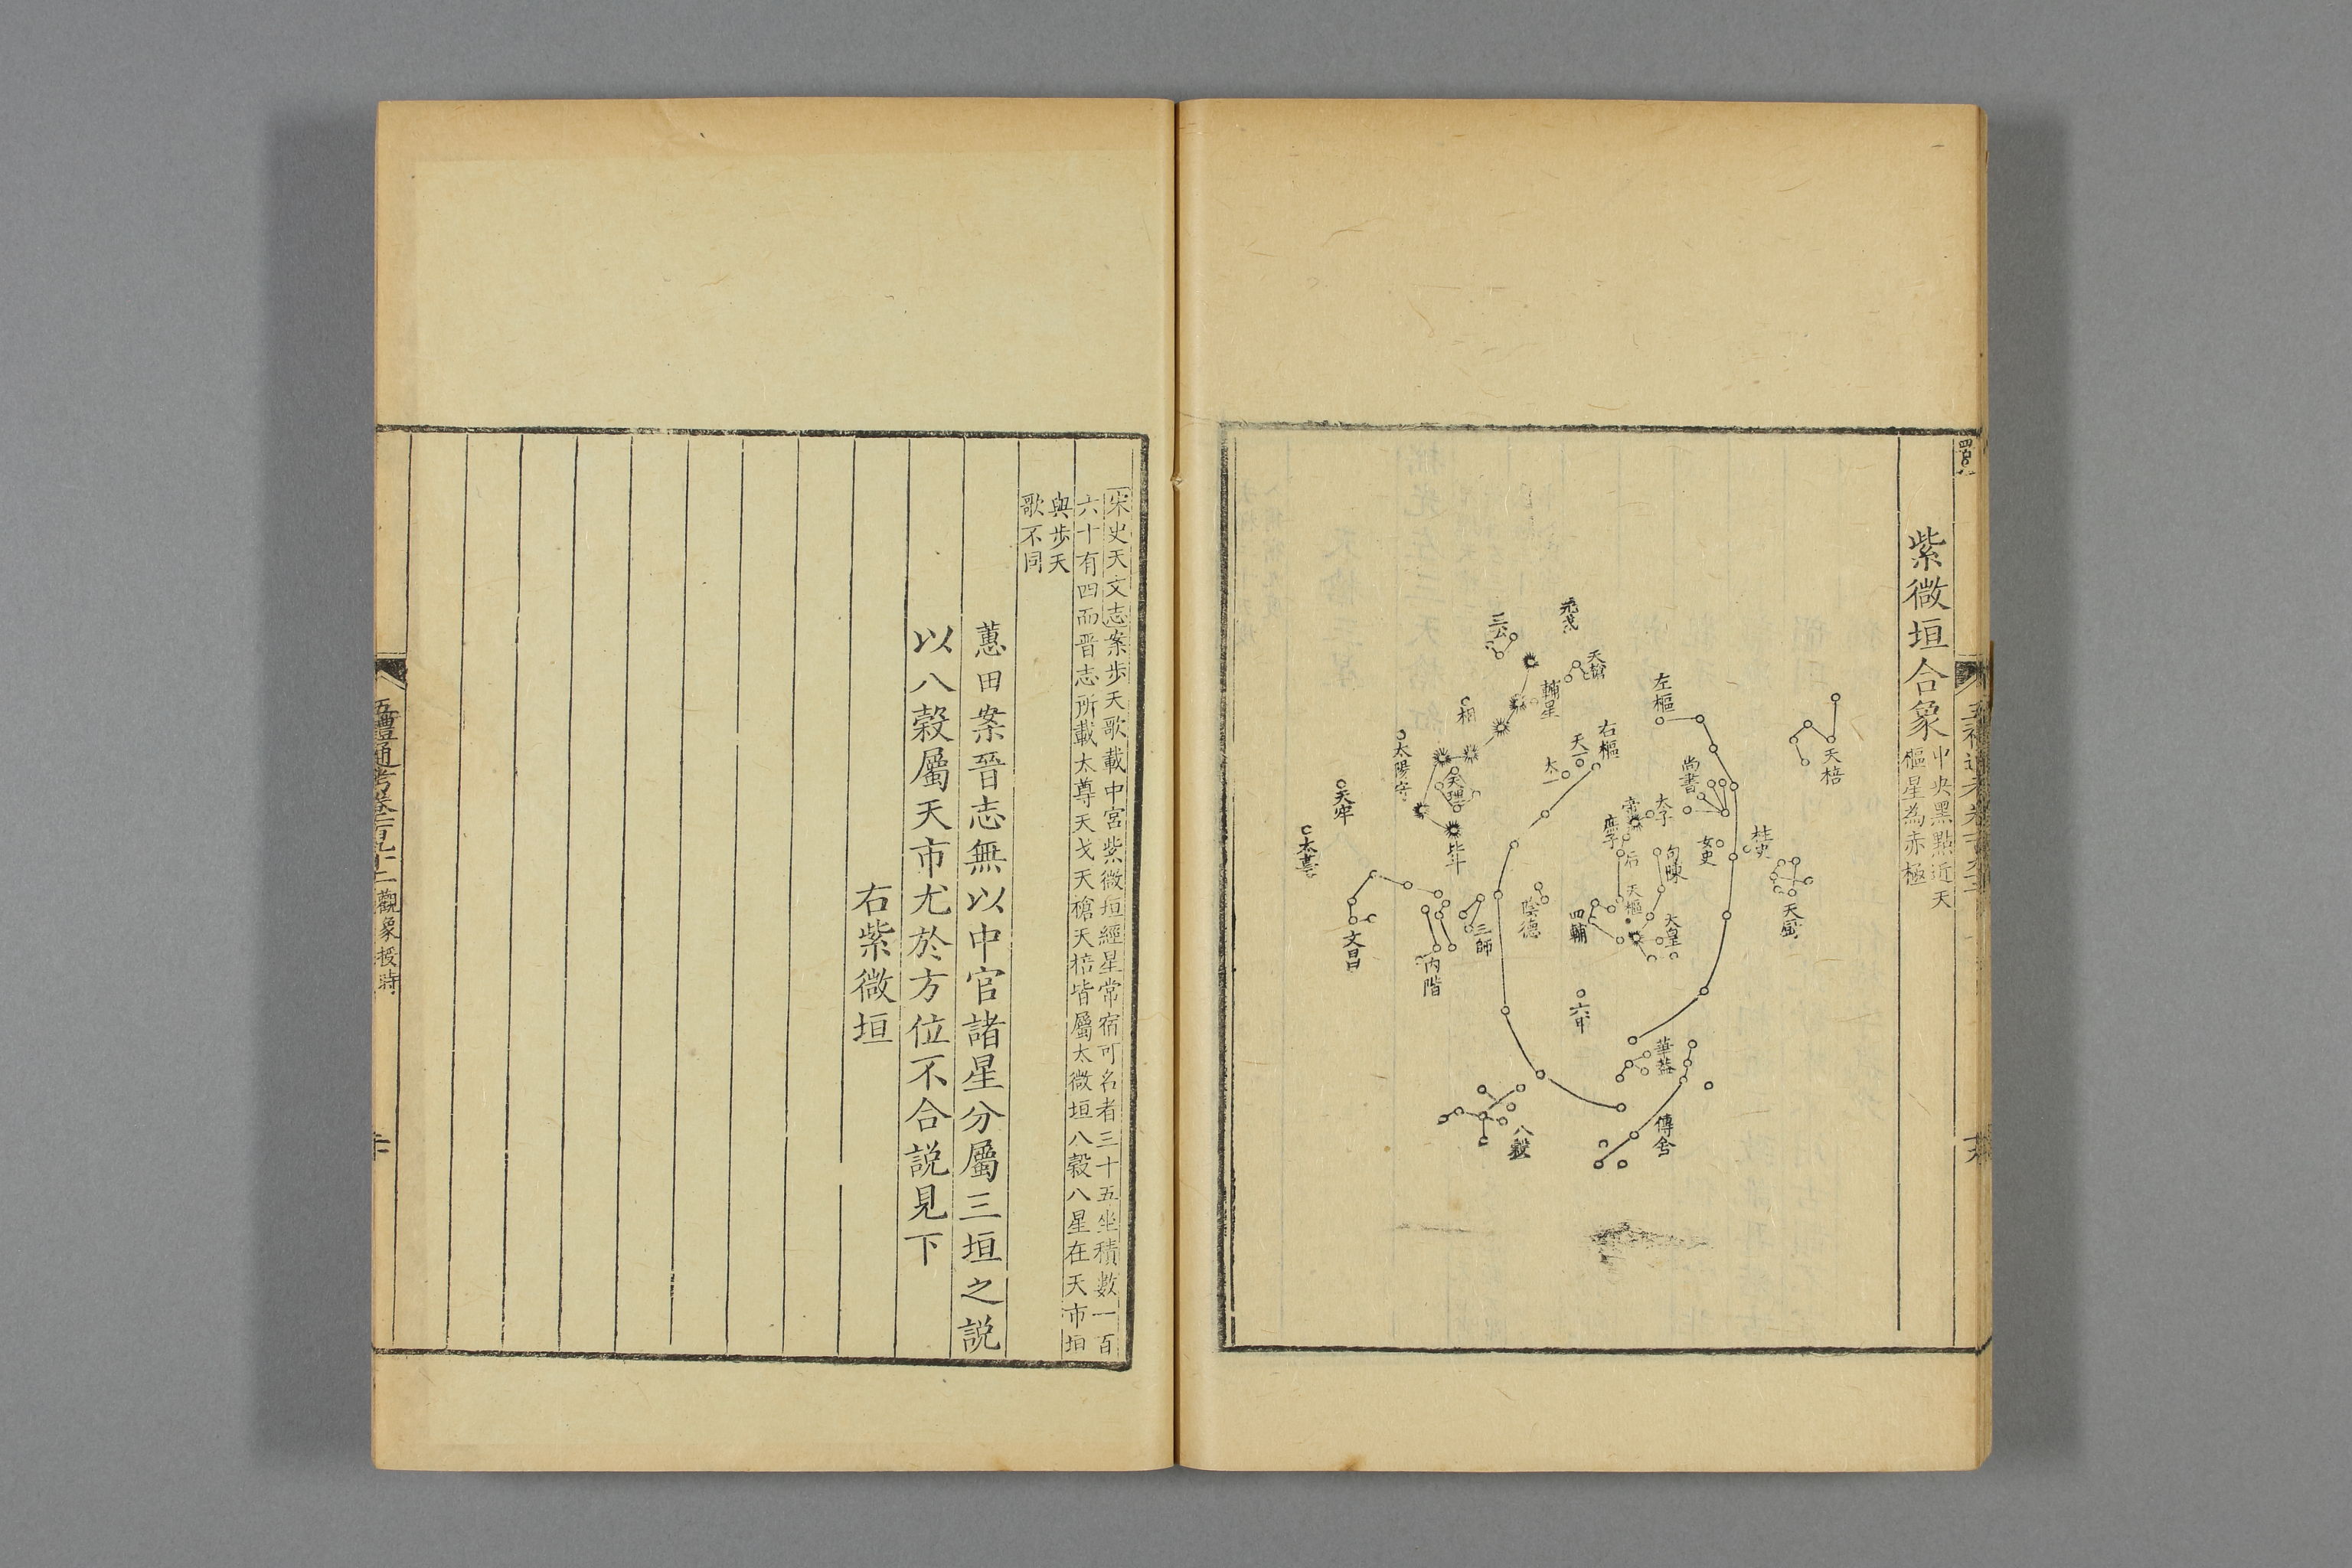 紫微垣合象
中央黑點近天
樞星為赤極
天棓
左樞
尚書
女史
柱史
天廚
天槍
元戈
三公
輔星
相
右樞
天一
太一
太陽守
天理
北斗
天牢
太尊
文昌
內階
三師
陰德
帝
太子
庶子
后
天樞
句陳
四輔
天皇
六甲
華蓋
傳舍
八穀
宋史天文志案步天歌載中宮紫微垣經星常宿可名者三十五坐積數一百
六十有四而晉志所載太尊天戈天槍天棓皆屬太微垣八穀八星在天市垣
與步天
歌不同
蕙田案晉志無以中官諸星分屬三垣之說
以八穀屬天市尤於方位不合說見下
右紫微垣
五禮通考卷一百九十二 觀象授時